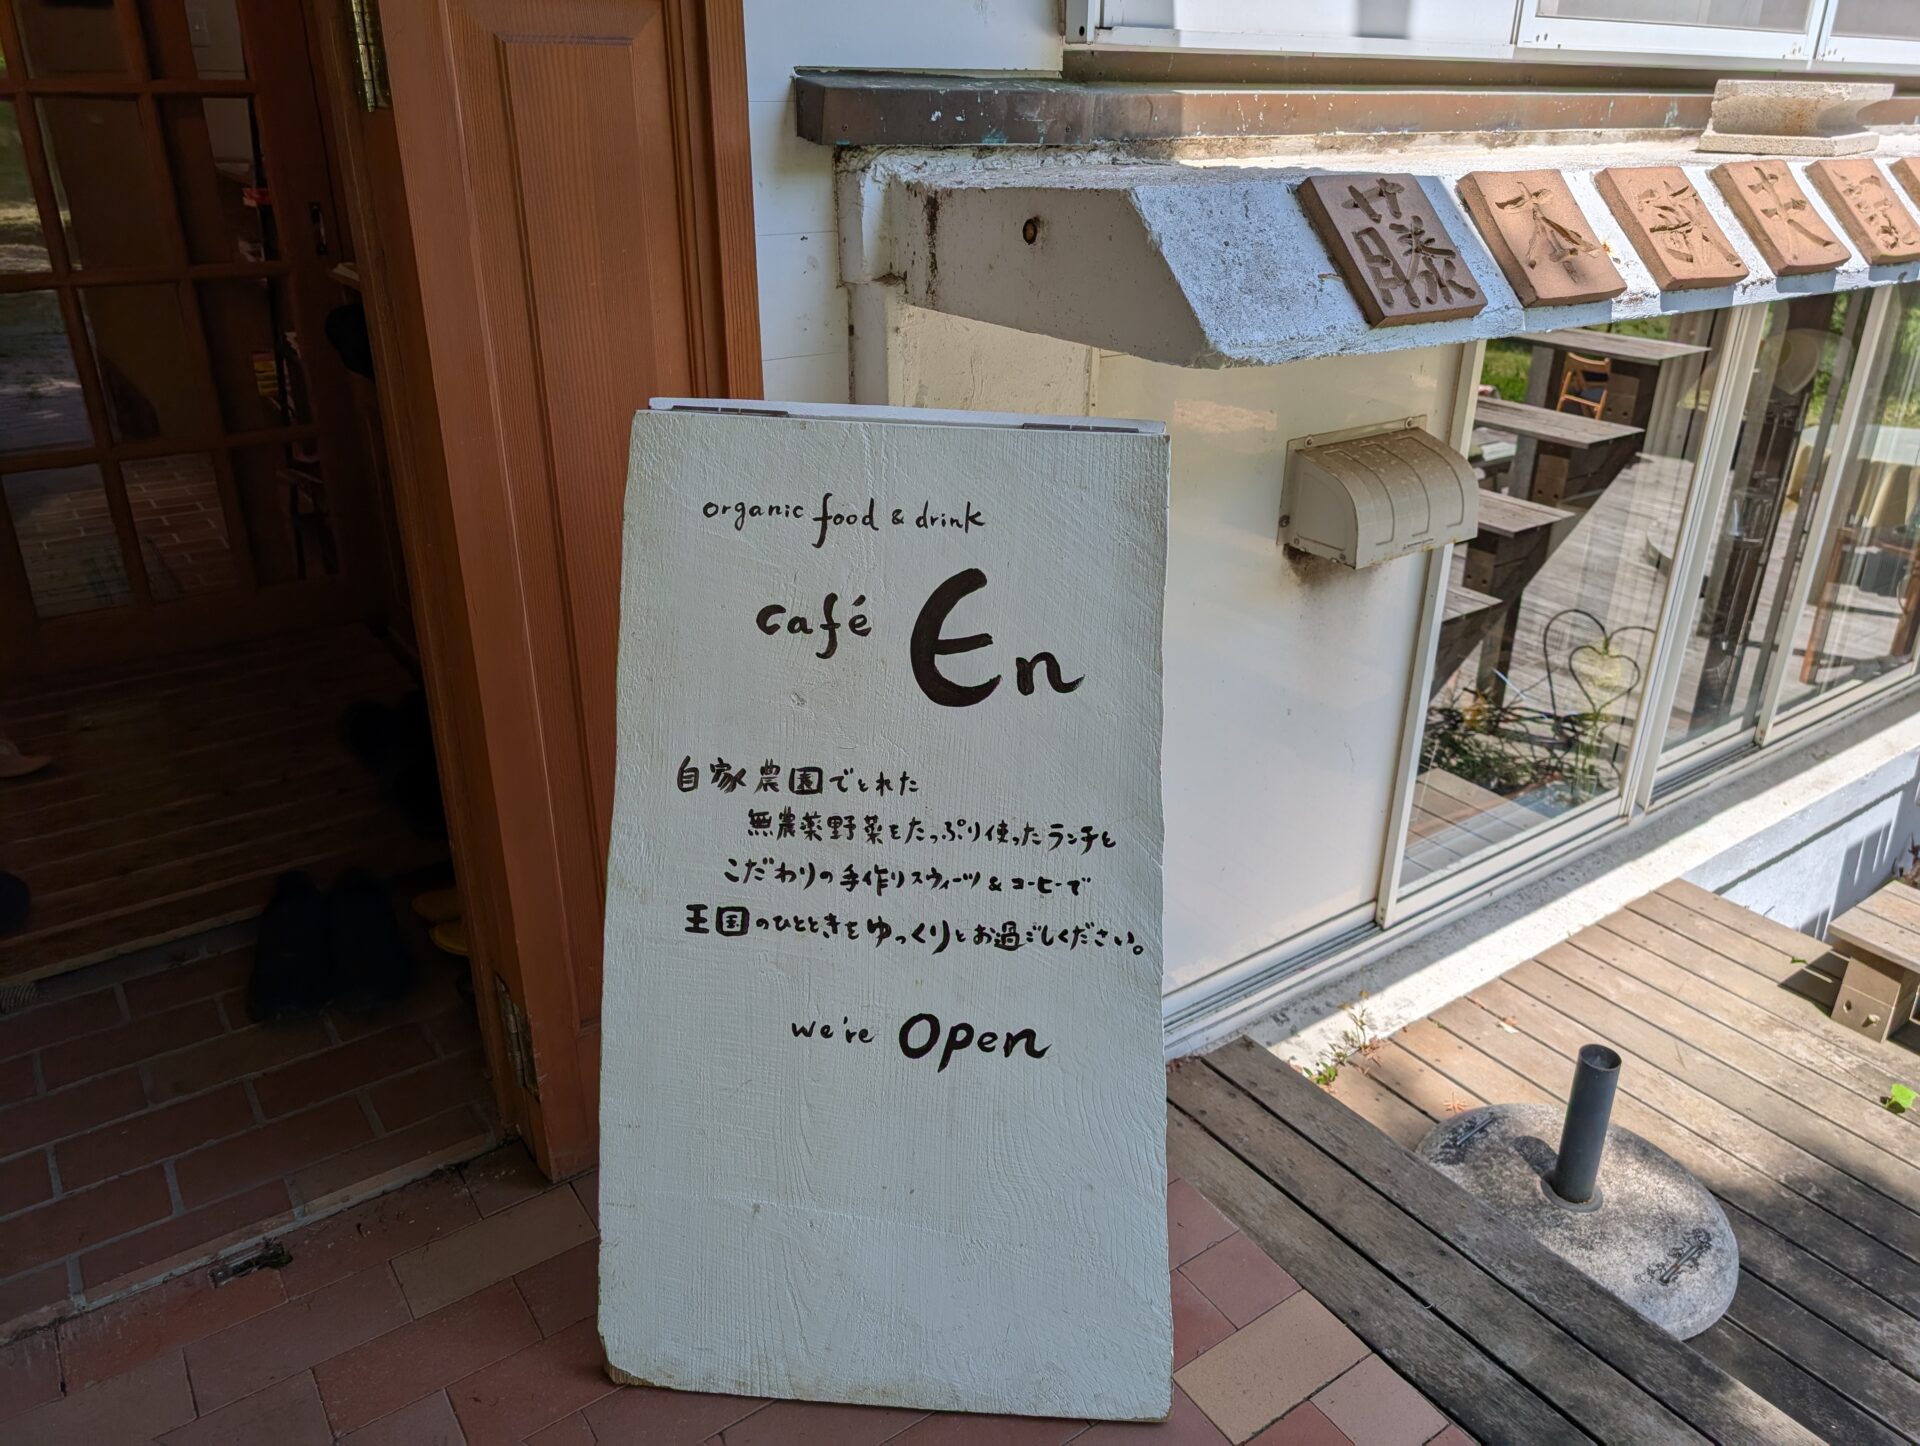 organic food & drink
café En
自家農園でとれた
無農薬野菜をたっぷり使ったランチと
こだわりの手作りスウィーツ & コーヒーで
王国のひとときをゆっくりとお過ごしください。
we're Open
藤本敏夫